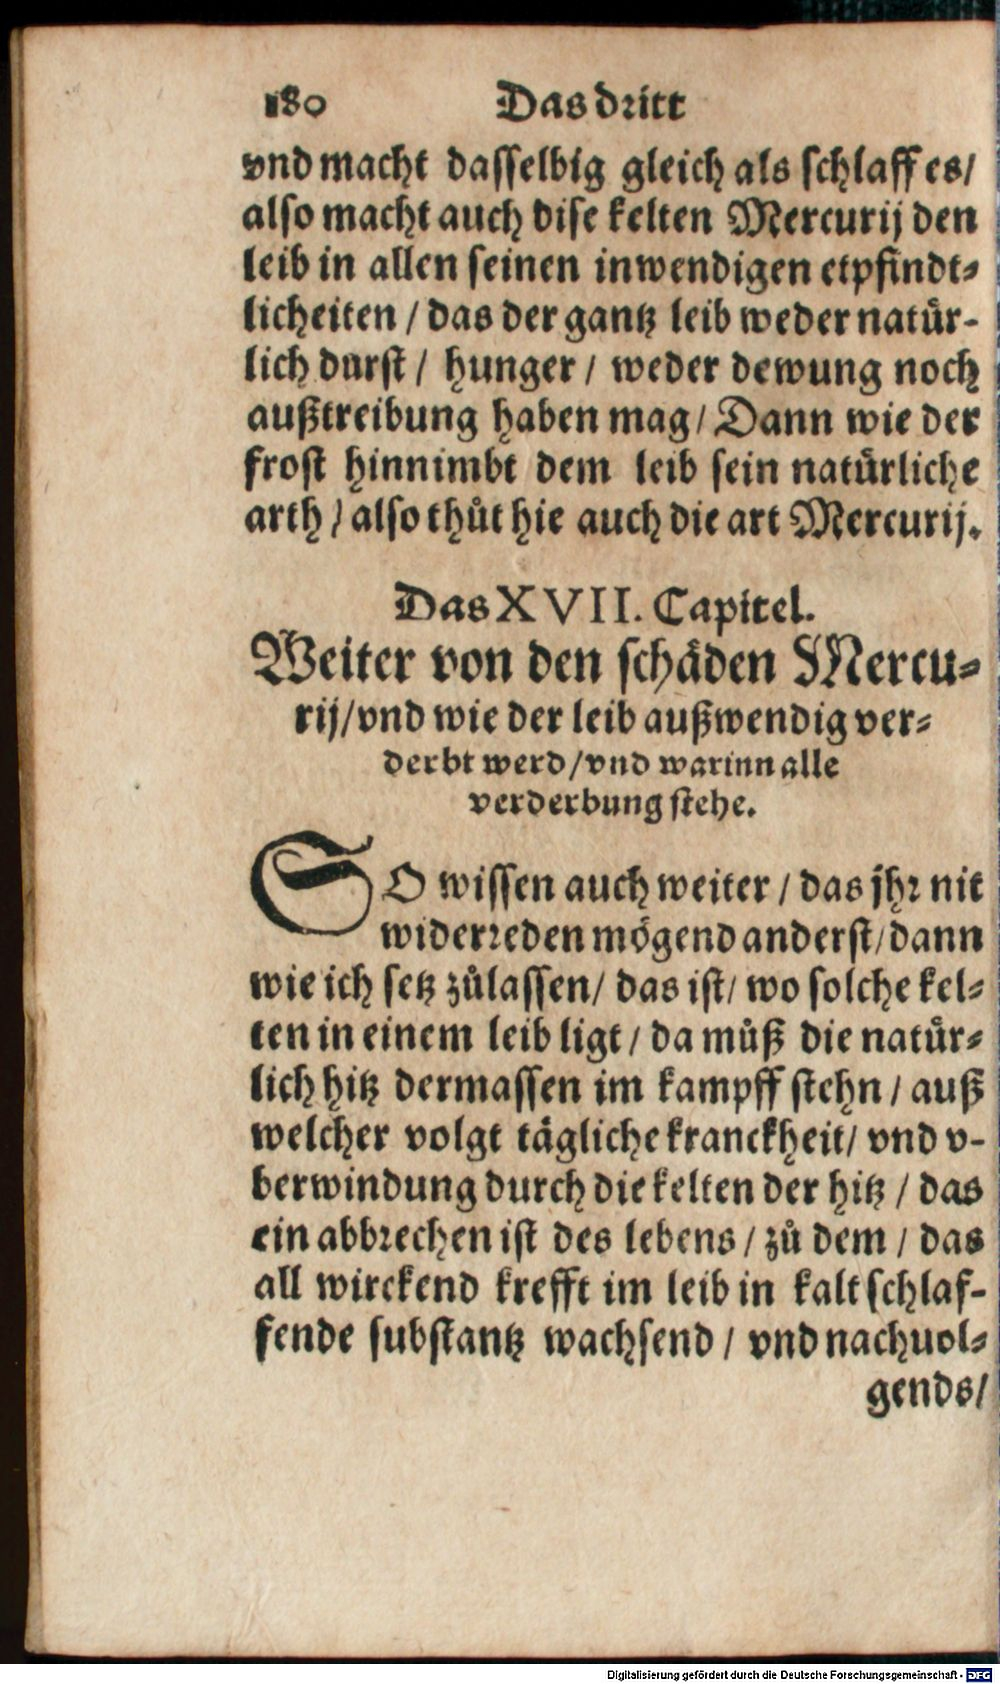 180 Das dritt
vnd macht dasselbig gleich als schlaff es/
also macht auch dise kelten Mercurij den
leib in allen seinen inwendigen etpfindt-
licheiten / das der gantz leib weder natür-
lich durst / hunger / weder dewung noch
außtreibung haben mag / Dann wie der
frost hinnimbt dem leib sein natürliche
arth / also thůt hie auch die art Mercurij.
Das XVII. Capitel.
Weiter von den schäden Mercu-
rij/vnd wie der leib außwendig ver-
derbt werd/vnd warinn alle
verderbung stehe.
SO wissen auch weiter / das jhr nit
widerreden mögend anderst/dann
wie ich setz zůlassen/ das ist/ wo solche kel-
ten in einem leib ligt / da můß die natür-
lich hitz dermassen im kampff stehn / auß
welcher volgt tägliche kranckheit/ vnd v-
berwindung durch die kelten der hitz / das
ein abbrechen ist des lebens / zů dem / das
all wirckend krefft im leib in kalt schlaf-
fende substantz wachsend / vnd nachuol-
gends/
Digitalisierung gefördert durch die Deutsche Forschungsgemeinschaft - DFG